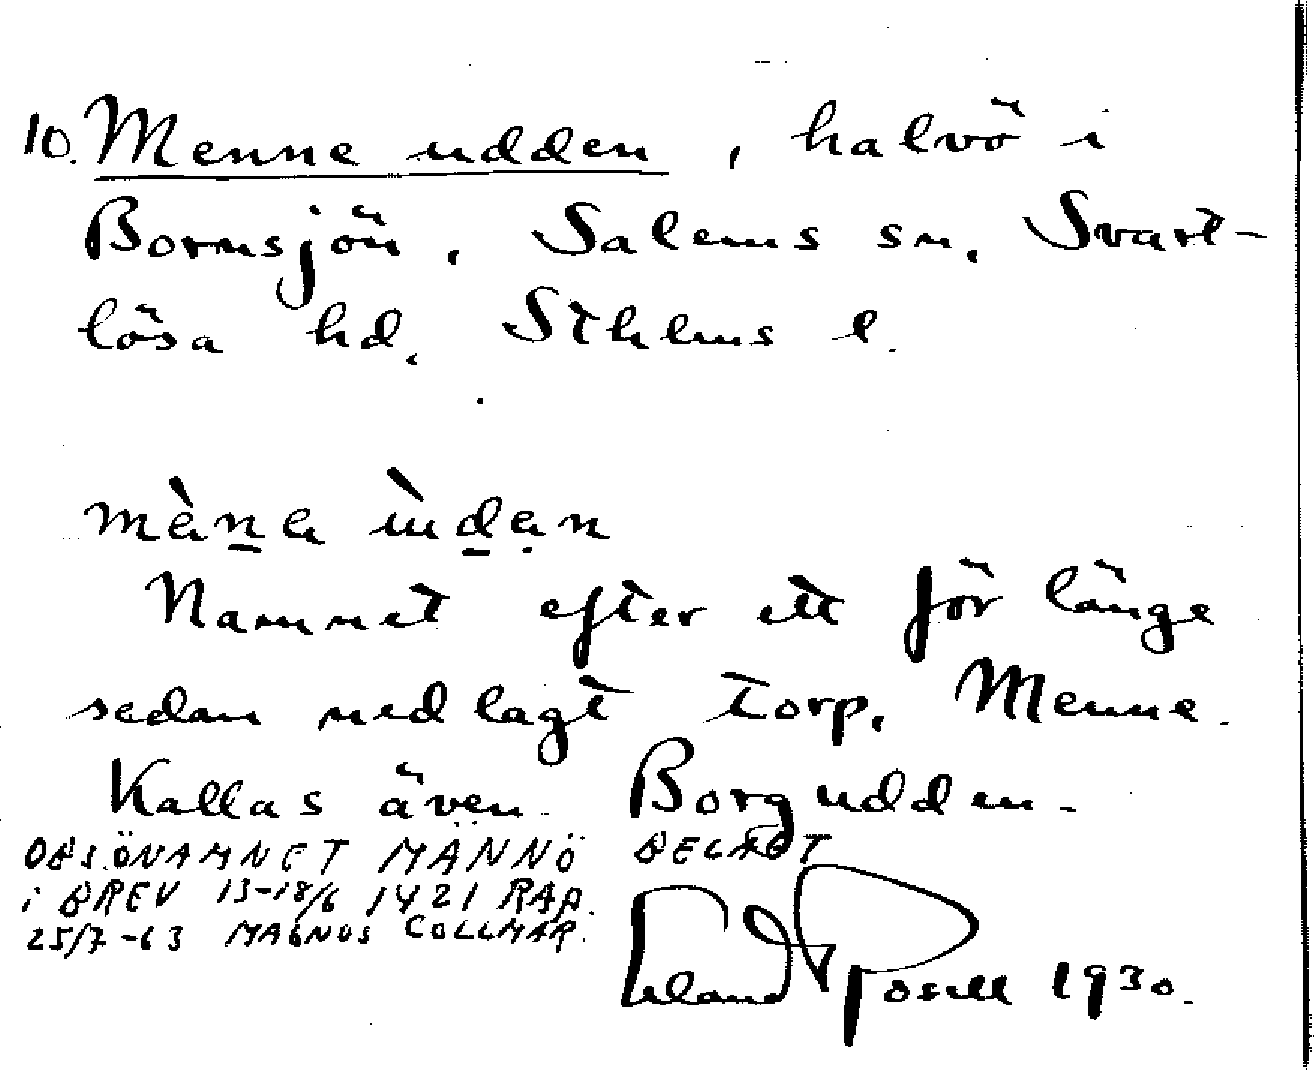 10. Menne udden, halvö i
Bornsjön, Salems sn, Svart-
lösa hd, Sthlms l.
màna ùdan
Namnet efter ett för länge
sedan nedlagt torp, Menne.
Kallas även Borgudden.
OBS. ÖNAMNET MÄNNÖ BELAGT
i BREV 13-18/6 1421 RAP.
25/7-63 MAGNUS COLLMAR.
Erland Rosell 1930.